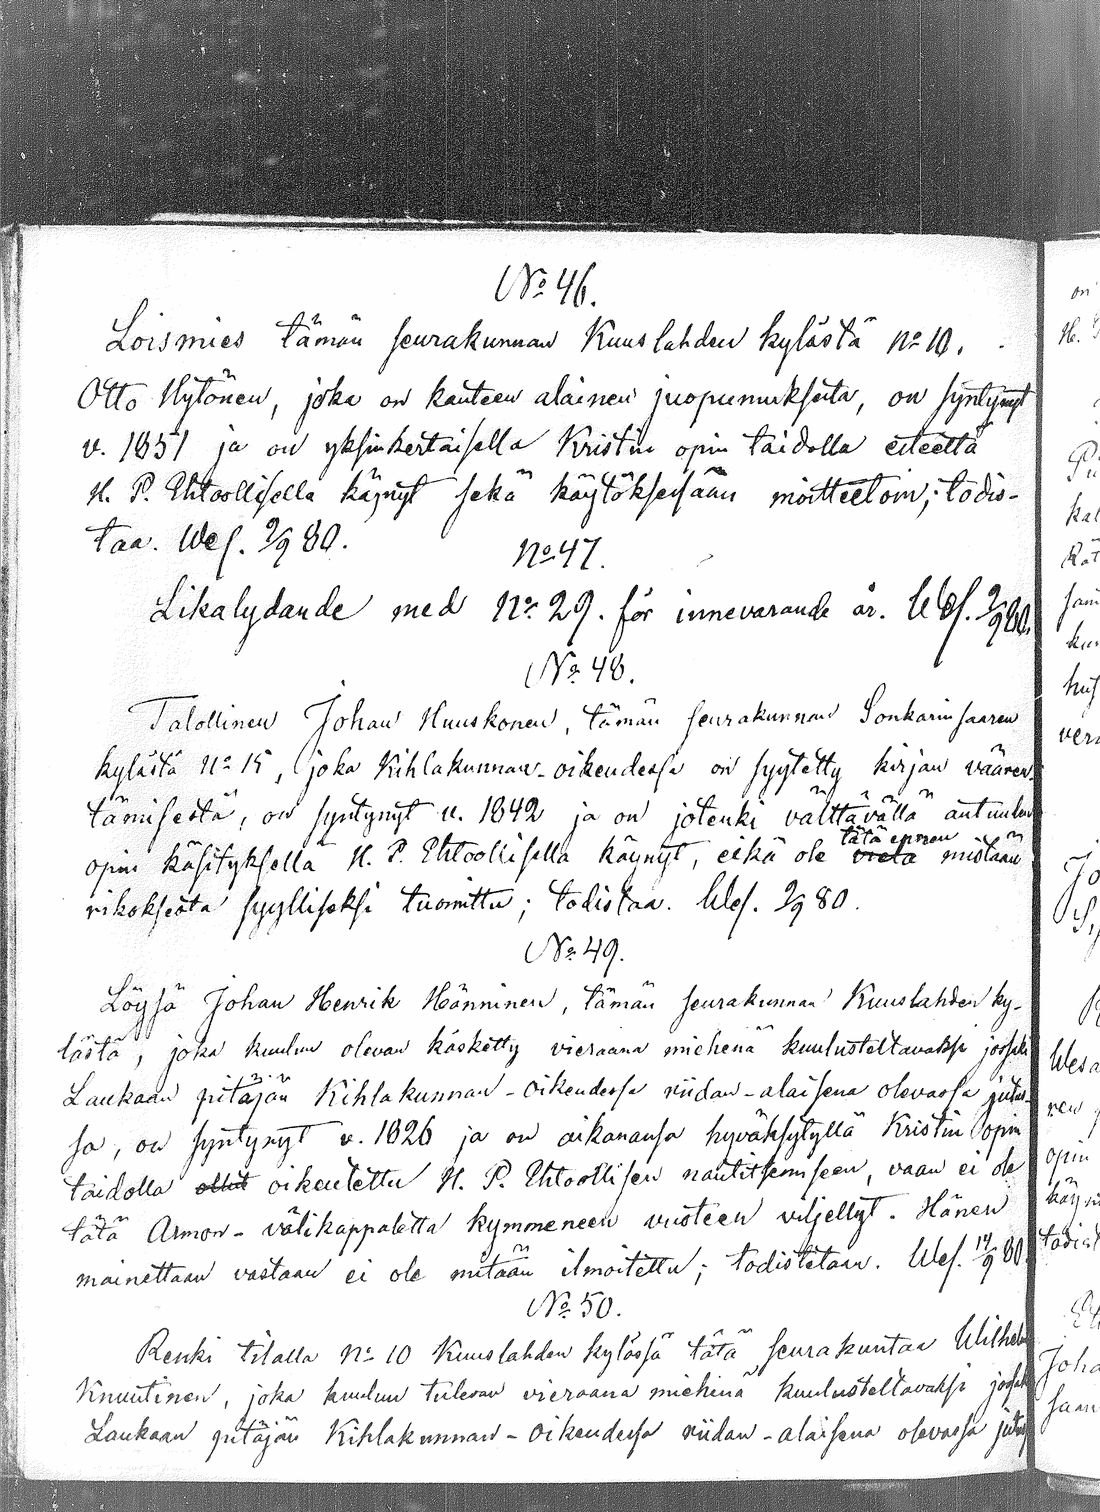 No 46.
Loismies tämän seurakunnan Kuuslahden kylästä No 10.
Otto Hytönen, joka on kanteen alainen juopumuksesta, on syntynyt
v. 1851 ja on yksinkertaisella Kristin opin taidolla eteettä
H. P. Ehtoollisella käynyt sekä käytöksessään moitteetoin; todis-
taa. Wes. 9/9 80.
No 47.
Likalydande med No 29. för innevarande år. Wes. 9/9 80.
No 48.
Talollinen Johan Huuskonen, tämän seurakunnan Sonkarinsaaren
kylästä No 15, joka Kihlakunnan-oikeudessa on syytetty kirjan väären-
tämisestä, on syntynyt v. 1842 ja on jotenki välttävällä autuuden
tätä ennen
opin käsityksellä H. P. Ehtoollisella käynyt, eikä ole vielä mistään
rikoksesta syylliseksi tuomittu; todistaa. Wes. 9/9 80.
No 49.
Löysä Johan Henrik Hänninen, tämän seurakunnan Kuuslahden ky-
lästä, joka kuuluu olevan käsketty vieraana miehenä kuulusteltavaksi jossaki
Laukaan pitäjän Kihlakunnan-oikeudessa riidan-alaisena olevassa jutus-
sa, on syntynyt v. 1826 ja on aikanansa hyväksytyllä Kristin opin
taidolla ollut oikeutettu H. P. Ehtoollisen nautitsemiseen, vaan ei ole
tätä Armon-välikappaletta kymmeneen vuoteen viljellyt. Hänen
mainettaan vastaan ei ole mitään ilmoitettu; todistetaan. Wes. 14/9 80.
No 50.
Renki tilalla No 10 Kuuslahden kylässä tätä seurakuntaa Wilhelm
Knuutinen, joka kuuluu tulevan vieraana miehenä kuulusteltavaksi jossaki
Laukaan pitäjän Kihlakunnan-oikeudessa riidan-alaisena olevassa jutus